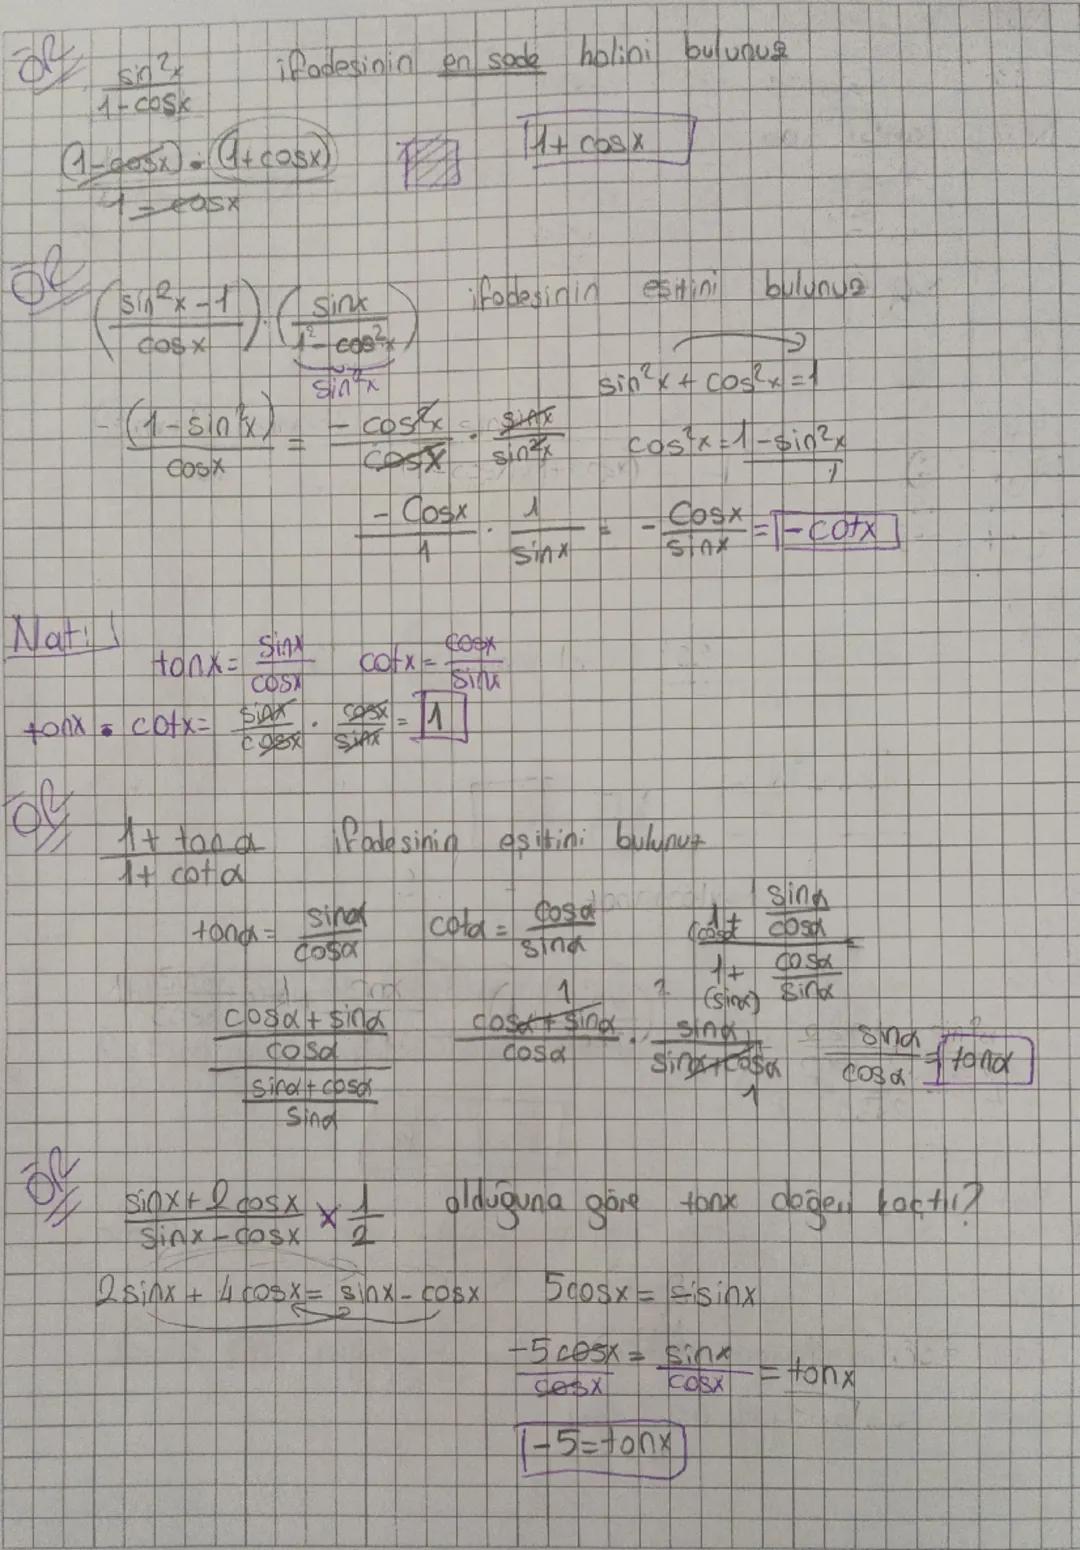 Ör/ sin²x / 1-cosx ifadesinin en sade halini bulunuz
(1-cosx) . (1+cosx) / 1-cosx 1+cosx
Ör/ (sin²x-1 / cosx) . (sinx / 1²-cos²x) ifadesinin eşitini bulunuz
sin²x
sin²x + cos²x = 1
-(1-sin²x) / cosx = -cos²x / cosx . sinx / sin²x cos²x = 1-sin²x / 1
-Cosx / 1 . 1 / sinx = - Cosx / sinx = -cotx
Not:
tanx = sinx / cosx cotx = cosx / sinx
tanx . cotx = sinx / cosx . cosx / sinx = 1
Ör/ 1+tanα / 1+cotα ifadesinin eşitini bulunuz
tanα = sinα / cosα cotα = cosα / sinα 1 + sinα / cosα (cosα) / 1 + cosα / sinα (sinα) =
cosα+sinα / cosα / sinα+cosα / sinα cosα+sinα / cosα . sinα / sinα+cosα 1 1 sinα / cosα = tanα
Ör/ sinx+2cosx / sinx-cosx × 1 / 2 olduğuna göre tanx değeri kaçtır?
2sinx + 4cosx = sinx - cosx 5cosx = -sinx
-5cosx / cosx = sinx / cosx = tanx
-5 = tanx